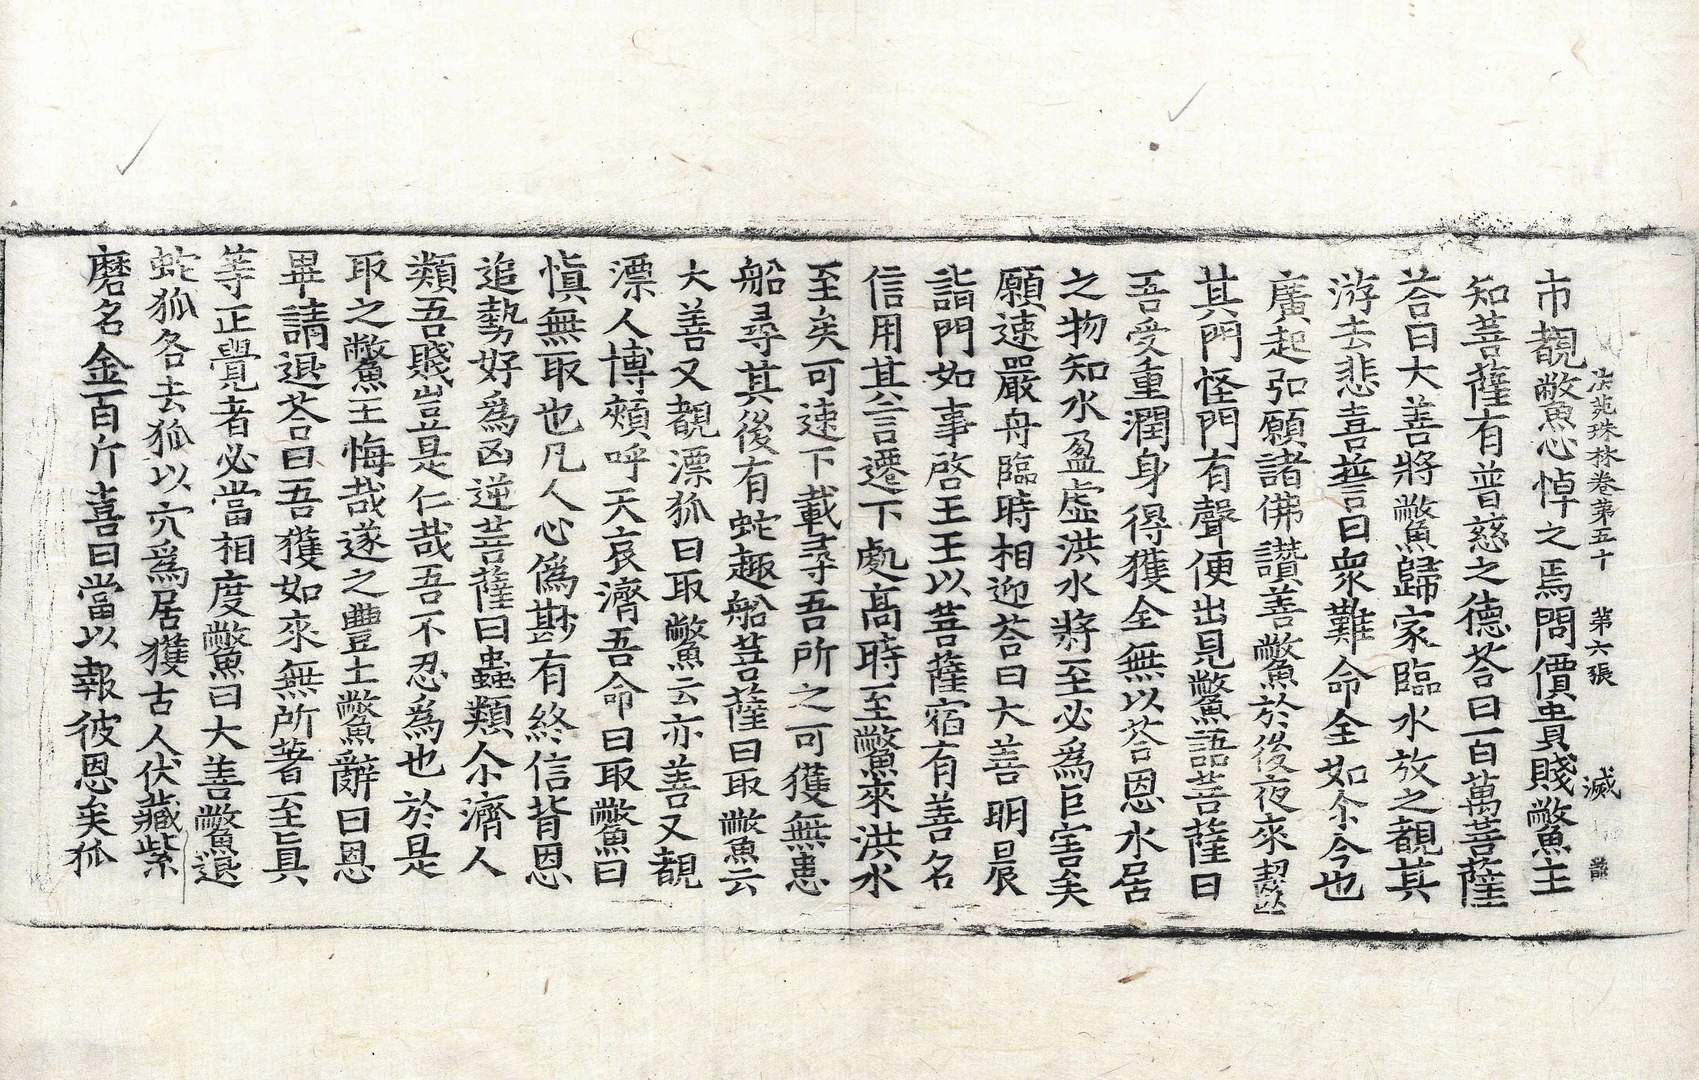 法苑珠林卷第五十 第六張 滅
市覩鼈心悼之焉問價貴賤鼈主
知菩薩有普慈之德荅曰百萬菩薩
荅曰大善將鼈歸家臨水放之覩其
游去悲喜誓曰衆難命全如尒今也
廣起弘願諸佛讚善鼈於後夜來齧
其門怪門有聲便出見鼈語菩薩曰
吾受重潤身得獲全無以荅恩水居
之物知水盈虛洪水將至必爲巨害矣
願速嚴舟臨時相迎荅曰大善明晨
詣門如事啓王王以菩薩宿有善名
信用其言遷下處高時至鼈來洪水
至矣可速下載尋吾所之可獲無患
船尋其後有蛇趣船菩薩曰取鼈云
大善又覩漂狐曰取鼈云亦善又覩
漂人博頰呼天哀濟吾命曰取鼈曰
愼無取也凡人心僞尠有終信背恩
追勢好爲凶逆菩薩曰蟲類尒濟人
類吾賤豈是仁哉吾不忍爲也於是
取之鼈王悔哉遂之豐土鼈辭曰恩
畢請退荅曰吾獲如來無所著至眞
等正覺者必當相度鼈曰大善鼈退
蛇狐各去狐以穴爲居獲古人伏藏紫
磨名金百斤喜曰當以報彼恩矣狐